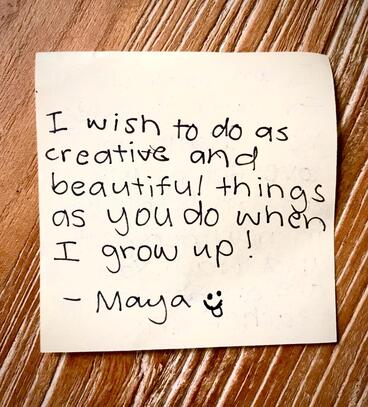 I wish to do as
creative and
beautiful things
as you do when
I grow up!
- Maya